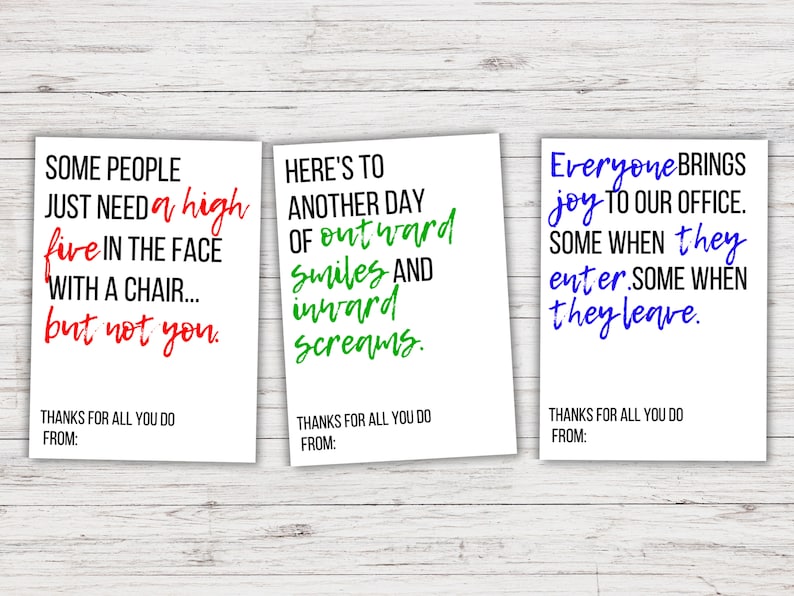 SOME PEOPLE
JUST NEED a high
five IN THE FACE
WITH A CHAIR...
but not you.
THANKS FOR ALL YOU DO
FROM:
HERE'S TO
ANOTHER DAY
OF outward
smiles AND
inward
screams.
THANKS FOR ALL YOU DO
FROM:
Everyone BRINGS
joy TO OUR OFFICE.
SOME WHEN they
enter. SOME WHEN
they leave.
THANKS FOR ALL YOU DO
FROM: